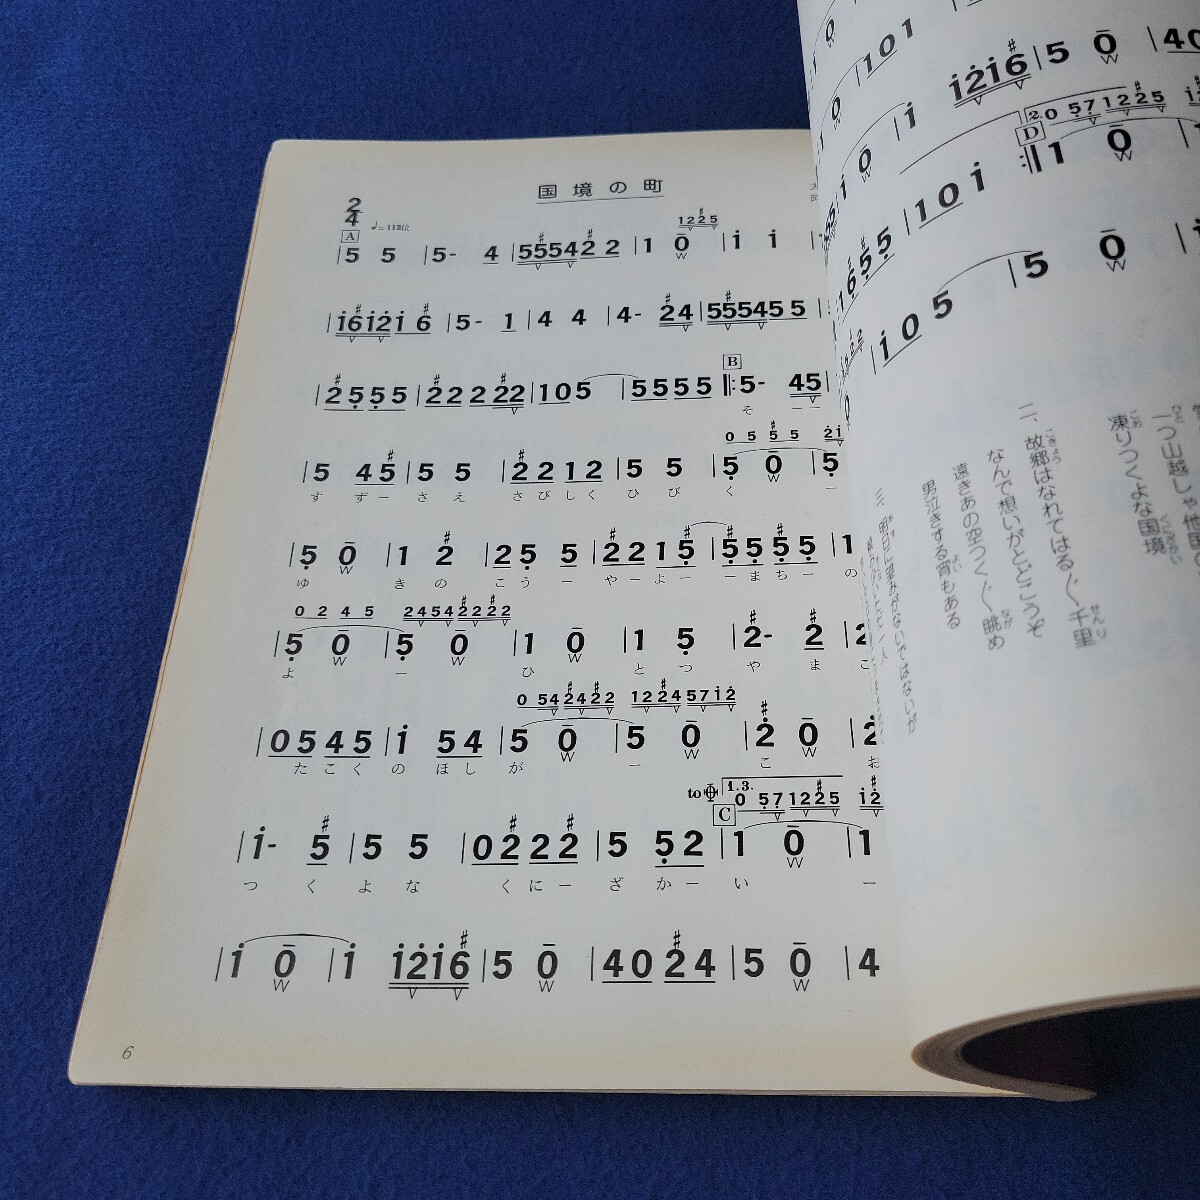 国境の町
2
4
♩=112位
A
1225
|5 5 |5- 4 |5554#22 |1 0 |i i
|i6i2i#6 |5- 1 |4 4 |4- #24 |555455
B
|#2555 |2222#22 |105 |5555 ‖:5- 45
そーー
0 5 #5 5 2i
|5 4#5 |5 5 |#2212 |5 5 |5 0 |5
すずーさえ さびしく ひび く ー
|5 0 |1 #2 |25 5 |#221#5 |#55#55 |1
ゆ きの こうー やーよー ーまちー の
0 2 4 5 2454#222#22
|5 0 |5 0 |1 0 |1 5 |#2- #2 |2
よ ー ひ とつ や ま こ
0 54#24#22 12#2457i2
|0545 |i 54 |5 0 |5 0 |#2 0 |2
たこく のほし が ー こ お
to 1.3.
C
0 5712#25 i#2
|i- #5 |5 5 |0#22#2 |5 52 |1 0 |1
つ く よな くにー ざかー い ー
|i 0 |i i2i#6 |5 0 |40#24 |5 0 |4
6
|101
i2i#6 |5 0 |40
2.
0 5712#25
D
|i 0 |i :‖1 0
|10i
|i05 |5 0
一つ山越しゃ他国の
凍りつくよな国境
二、故郷はなれてはる〲千里
なんで想いがとどこうぞ
遠きあの空つく〲眺め
男泣きする宵もある
三、明日に望みがないではないが